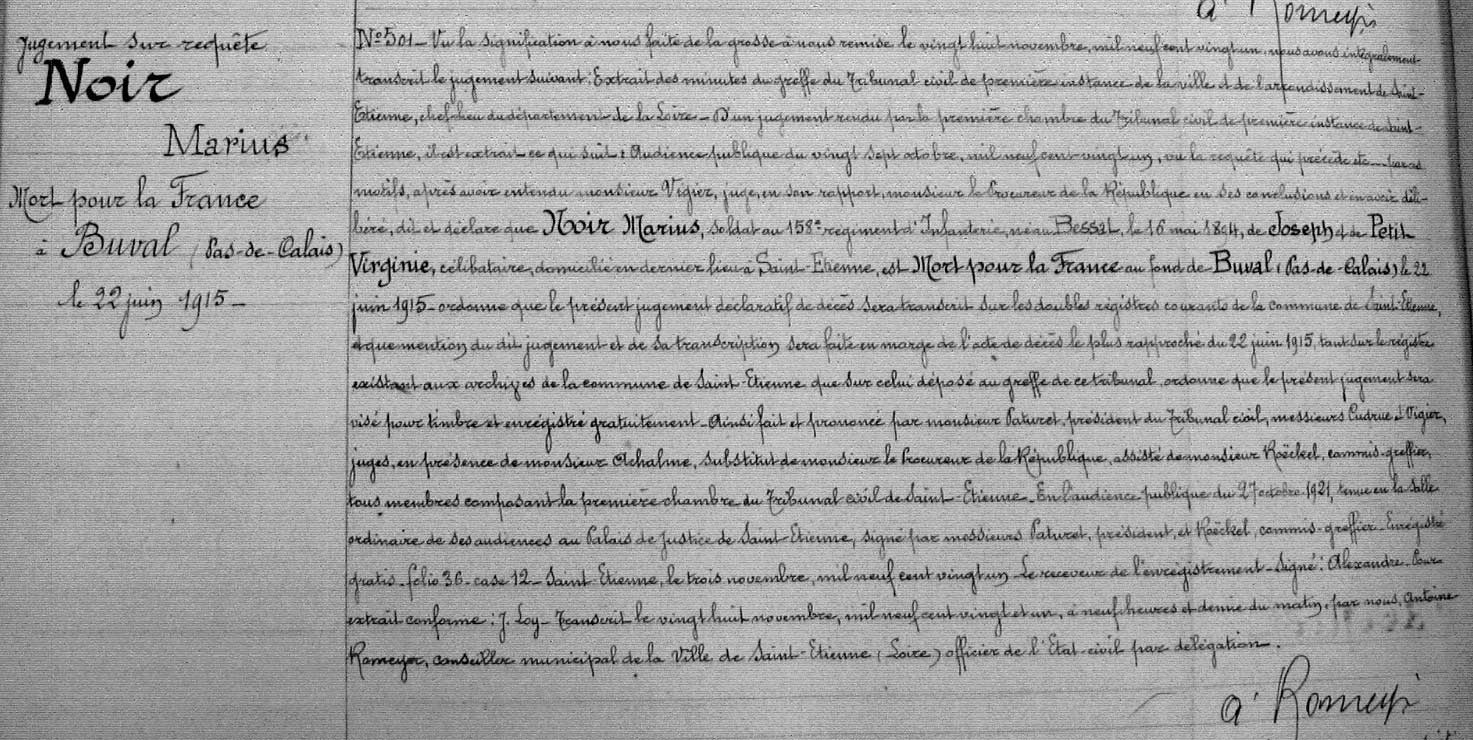 Jugement sur requête
Noir
Marius
Mort pour la France
à Buval (Pas-de-Calais)
le 22 juin 1915_
a Romeyer
N° 501_ Vu la signification à nous faite de la grosse à nous remise le vingt huit novembre, mil neuf cent vingt un, nous avons intégralement
transcrit le jugement suivant: Extrait des minutes du greffe du Tribunal civil de première instance de la ville et de l'arrondissement de Saint-
Etienne, chef-lieu du département de la Loire_ D'un jugement rendu par la première chambre du Tribunal civil de première instance de Saint-
Etienne, il est extrait ce qui suit: Audience publique du vingt sept octobre, mil neuf cent vingt un, vu la requête qui précède etc_ par ces
motifs, après avoir entendu monsieur Vigier, juge, en son rapport, monsieur le Procureur de la République en ses conclusions et en avoir déli-
béré, dit et déclare que Noir Marius, soldat au 158e régiment d'Infanterie, né au Bessat, le 16 mai 1894, de Joseph et de Petit
Virginie, célibataire, domicilié en dernier lieu à Saint-Etienne, est Mort pour la France au fond de Buval (Pas-de-Calais) le 22
juin 1915_ ordonne que le présent jugement déclaratif de décès sera transcrit sur les doubles régistres courants de la commune de Saint-Etienne,
et que mention du dit jugement et de sa transcription sera faite en marge de l'acte de décès le plus rapproché du 22 juin 1915, tant sur le régistre
existant aux archives de la commune de Saint-Etienne que sur celui déposé au greffe de ce tribunal, ordonne que le présent jugement sera
visé pour timbre et enrégistré gratuitement_ Ainsi fait et prononcé par monsieur Paturet, président du Tribunal civil, messieurs et Vigier,
juges, en présence de monsieur Achalme, substitut de monsieur le Procureur de la République, assisté de monsieur Roëckel, commis-greffier,
tous membres composant la première chambre du Tribunal civil de Saint-Etienne_ En l'audience publique du 27 octobre 1921, tenue en la salle
ordinaire de ses audiences au Palais de Justice de Saint-Etienne, signé par messieurs Paturet, président, et Roëckel, commis-greffier_ Enrégistré
gratis_ folio 36_ case 12_ Saint-Etienne, le trois novembre, mil neuf cent vingt un_ Le receveur de l'enrégistrement_ Signé: Alexandre_ Pour
extrait conforme: J. Loy_ Transcrit le vingt huit novembre, mil neuf cent vingt et un, à neuf heures et demie du matin, par nous, Antoine
Romeyer, conseiller municipal de la Ville de Saint-Etienne (Loire) officier de l'Etat-civil par délégation.
a Romeyer